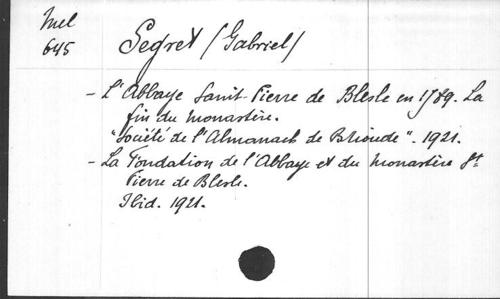 Mel
645
Segret (Gabriel)
- L'Abbaye Saint-Pierre de Blesle en 1789. La
fin du monastère.
"Société de l'Almanach de Brioude". 1921.
- La Fondation de l'Abbaye et du monastère St
Pierre de Blesle.
Ibid. 1921.